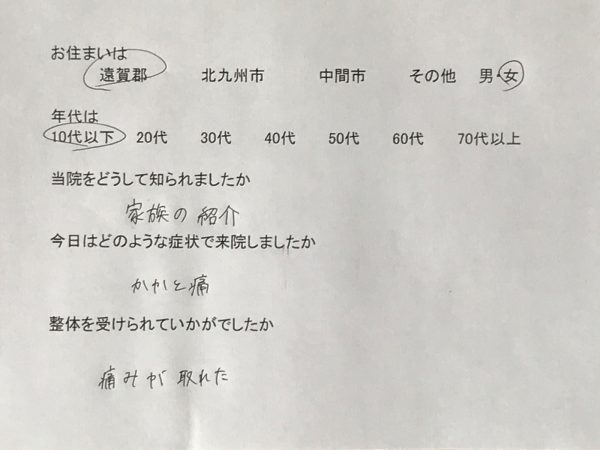 お住まいは
遠賀郡 北九州市 中間市 その他 男・女
年代は
10代以下 20代 30代 40代 50代 60代 70代以上
当院をどうして知られましたか
家族の紹介
今日はどのような症状で来院しましたか
かかと痛
整体を受けられていかがでしたか
痛みが取れた